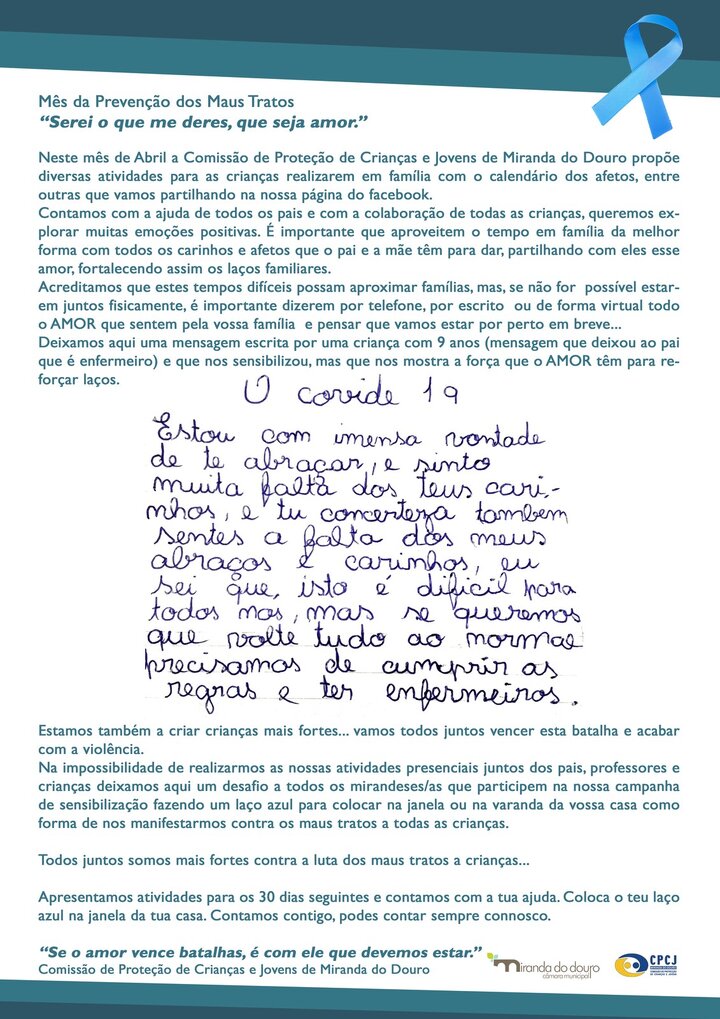 Mês da Prevenção dos Maus Tratos
“Serei o que me deres, que seja amor.”
Neste mês de Abril a Comissão de Proteção de Crianças e Jovens de Miranda do Douro propõe
diversas atividades para as crianças realizarem em família com o calendário dos afetos, entre
outras que vamos partilhando na nossa página do facebook.
Contamos com a ajuda de todos os pais e com a colaboração de todas as crianças, queremos ex-
plorar muitas emoções positivas. É importante que aproveitem o tempo em família da melhor
forma com todos os carinhos e afetos que o pai e a mãe têm para dar, partilhando com eles esse
amor, fortalecendo assim os laços familiares.
Acreditamos que estes tempos difíceis possam aproximar famílias, mas, se não for possível estar-
em juntos fisicamente, é importante dizerem por telefone, por escrito ou de forma virtual todo
o AMOR que sentem pela vossa família e pensar que vamos estar por perto em breve...
Deixamos aqui uma mensagem escrita por uma criança com 9 anos (mensagem que deixou ao pai
que é enfermeiro) e que nos sensibilizou, mas que nos mostra a força que o AMOR têm para re-
forçar laços.
O covide 19
Estou com imensa vontade
de te abraçar, e sinto
muita falta dos teus cari-
nhos, e tu concerteza tambem
sentes a falta dos meus
abraços e carinhos, eu
sei que, isto é dificil para
todos nos, mas se queremos
que volte tudo ao normal
precisamos de cumprir as
regras e ter enfermeiros.
Estamos também a criar crianças mais fortes... vamos todos juntos vencer esta batalha e acabar
com a violência.
Na impossibilidade de realizarmos as nossas atividades presenciais juntos dos pais, professores e
crianças deixamos aqui um desafio a todos os mirandeses/as que participem na nossa campanha
de sensibilização fazendo um laço azul para colocar na janela ou na varanda da vossa casa como
forma de nos manifestarmos contra os maus tratos a todas as crianças.
Todos juntos somos mais fortes contra a luta dos maus tratos a crianças...
Apresentamos atividades para os 30 dias seguintes e contamos com a tua ajuda. Coloca o teu laço
azul na janela da tua casa. Contamos contigo, podes contar sempre connosco.
“Se o amor vence batalhas, é com ele que devemos estar.”
Comissão de Proteção de Crianças e Jovens de Miranda do Douro
miranda do douro
câmara municipal
CPCJ